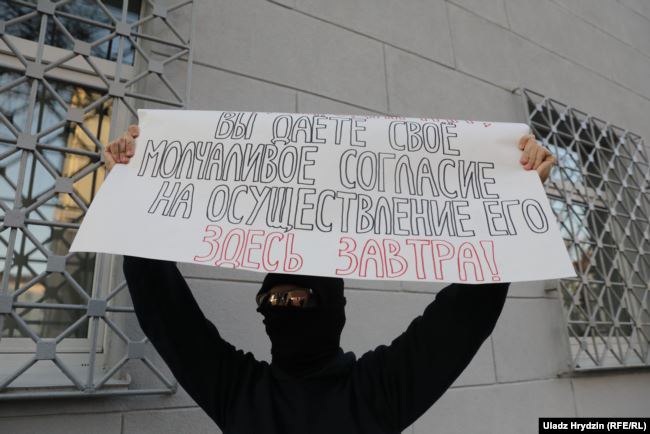 ВЫ ДАЁТЕ СВОЁ
МОЛЧАЛИВОЕ СОГЛАСИЕ
НА ОСУЩЕСТВЛЕНИЕ ЕГО
ЗДЕСЬ ЗАВТРА!
Uladz Hrydzin (RFE/RL)